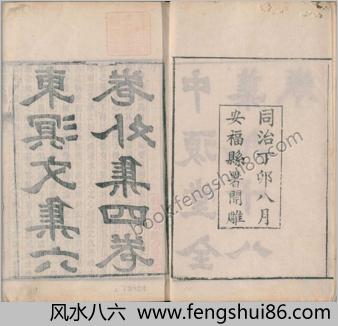 同治丁卯八月
安福縣署開雕
東溟文集六
卷外集四卷
book.fengshui86.com
风水八六 www.fengshui86.com